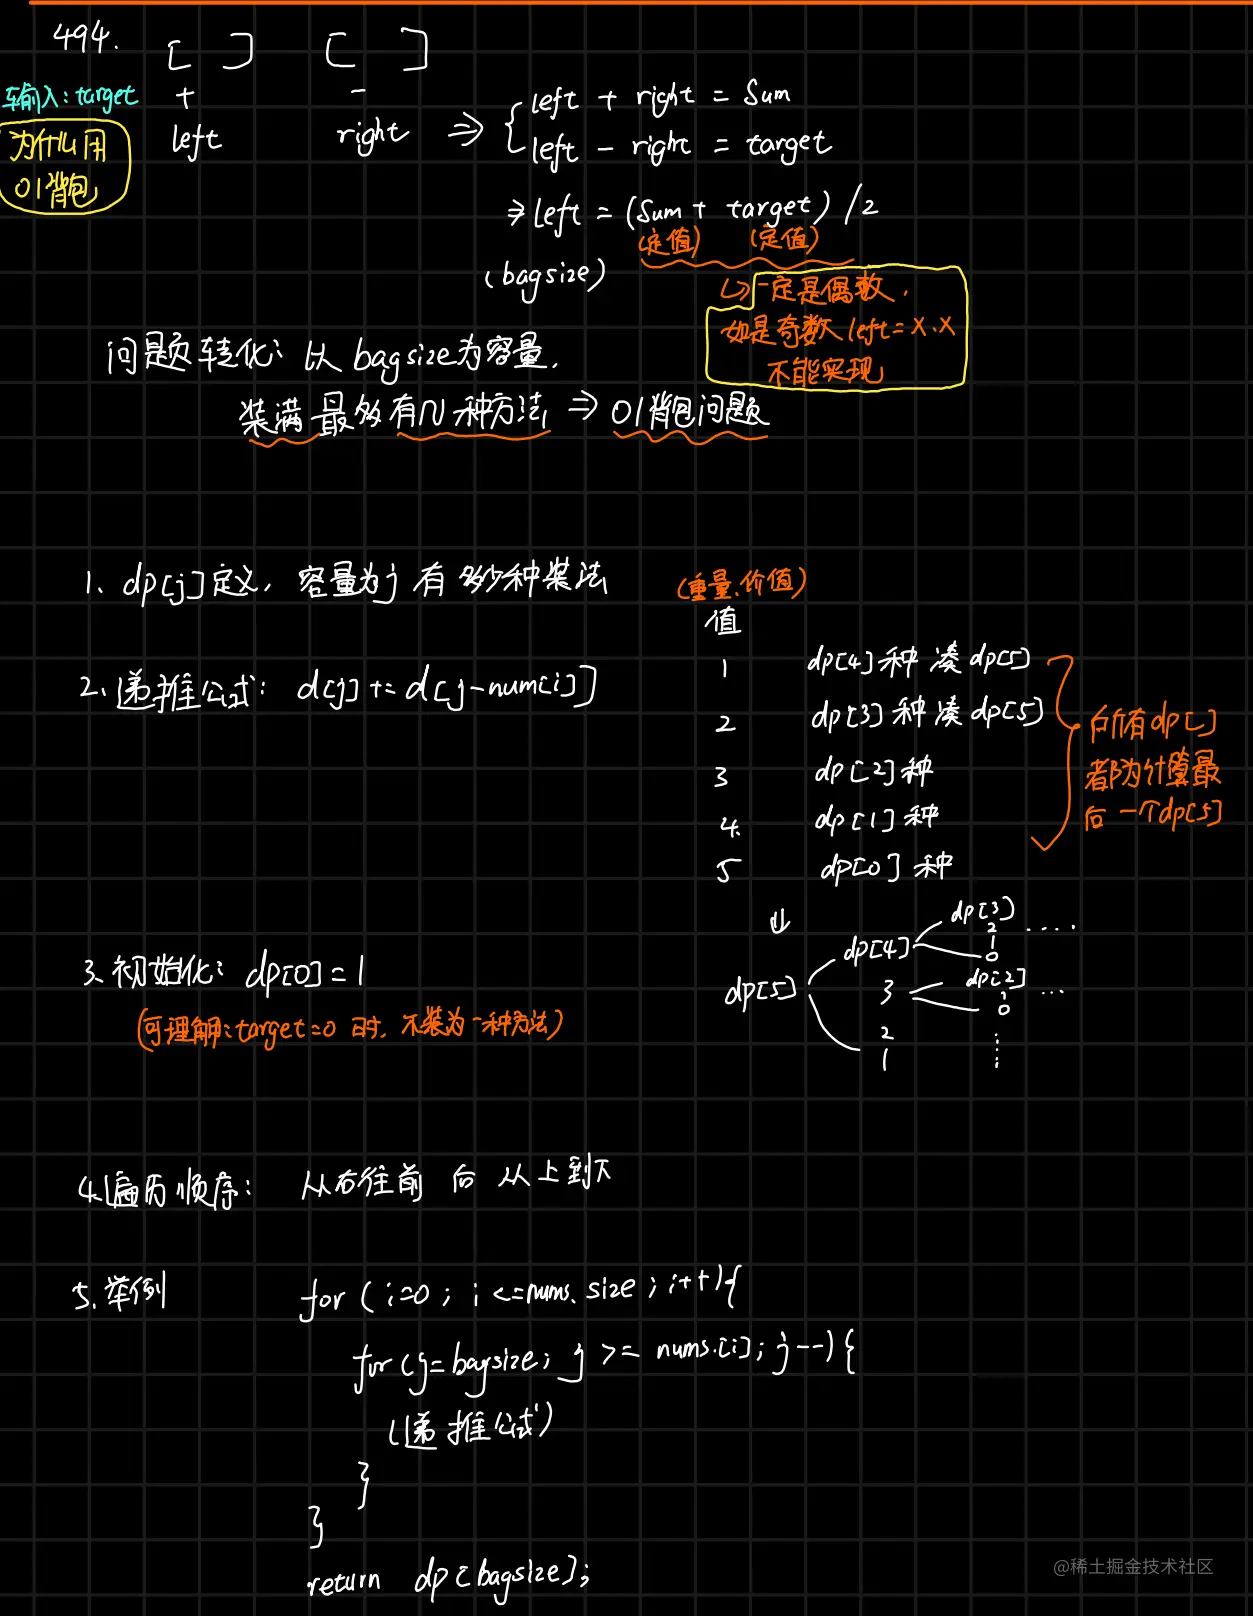 494. [ ] [ ]
输入: target + -
为什么用
01背包
left right ⇒ { left + right = Sum
left - right = target
⇒ left = (Sum + target) / 2
(定值) (定值)
(bagsize)
↳ 一定是偶数,
如是奇数 left = X.X
不能实现
问题转化: 以 bagsize为容量,
装满最多有N种方法 ⇒ 01背包问题
1、dp[j]定义, 容量为j 有多少种装法
2、递推公式: d[j] += d[j-num[i]]
(重量、价值)
值
1 dp[4]种 凑dp[5]
2 dp[3]种 凑dp[5]
3 dp[2]种
4. dp[1]种
5 dp[0]种
所有dp[]
都为计算最
后一个dp[5]
⇓
dp[5] dp[4] dp[3]
2 ....
1
0
3 dp[2]
1 ...
0
2
1
3、初始化: dp[0] = 1
(可理解: target=0 时, 不装为一种方法)
4、遍历顺序: 从右往前 后 从上到下
5、举例 for ( i=0 ; i <=nums. size ; i++){
for (j= bagsize; j >= nums.[i]; j--) {
(递推公式)
}
}
return dp[bagsize];
@稀土掘金技术社区